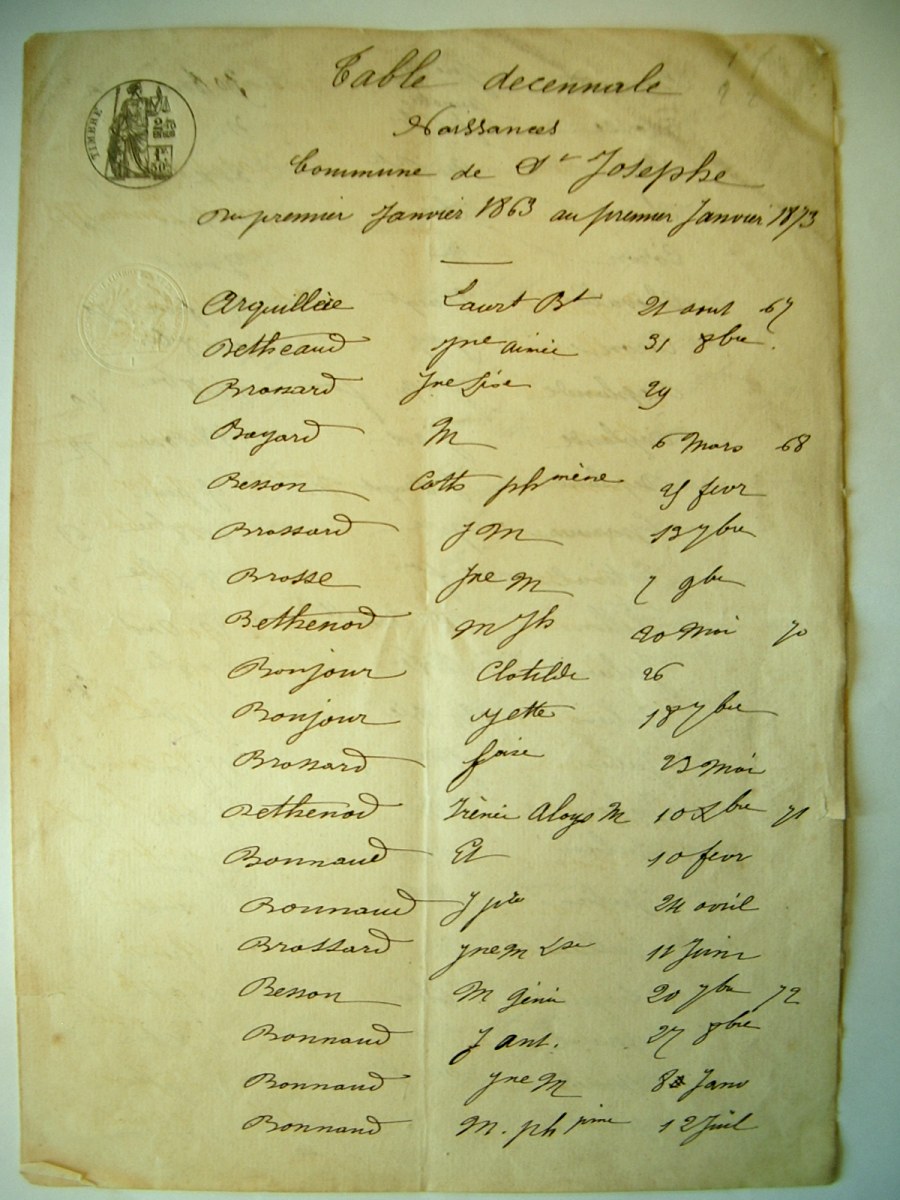 TIMBRE
Table decennale
Naissances
Commune de St Josephe
Du premier Janvier 1863 au premier Janvier 1873
Arquilliée Laurt Bt 21 aout 67
Betheaud Jne aimée 31 8bre
Brossard Jne Lise 29
Bayard M 6 Mars 68
Besson Catte phmène 25 fevr
Brossard J M 13 7bre
Brosse Jne M 7 9bre
Bethenod M Jh 20 Mai 70
Bonjour Clotilde 26
Bonjour yette 18 7bre
Brossard foise 23 Mai
Bethenod Irénée Aloys M 10 Xbre 71
Bonnaud Et 10 fevr
Bonnaud J pre 24 avril
Brossard Jne M Lse 11 Juin
Besson M génie 20 7bre 72
Bonnaud J ant. 27 8bre
Bonnaud Jne M 8 Janv
Bonnaud M. ph jpine 12 Juil